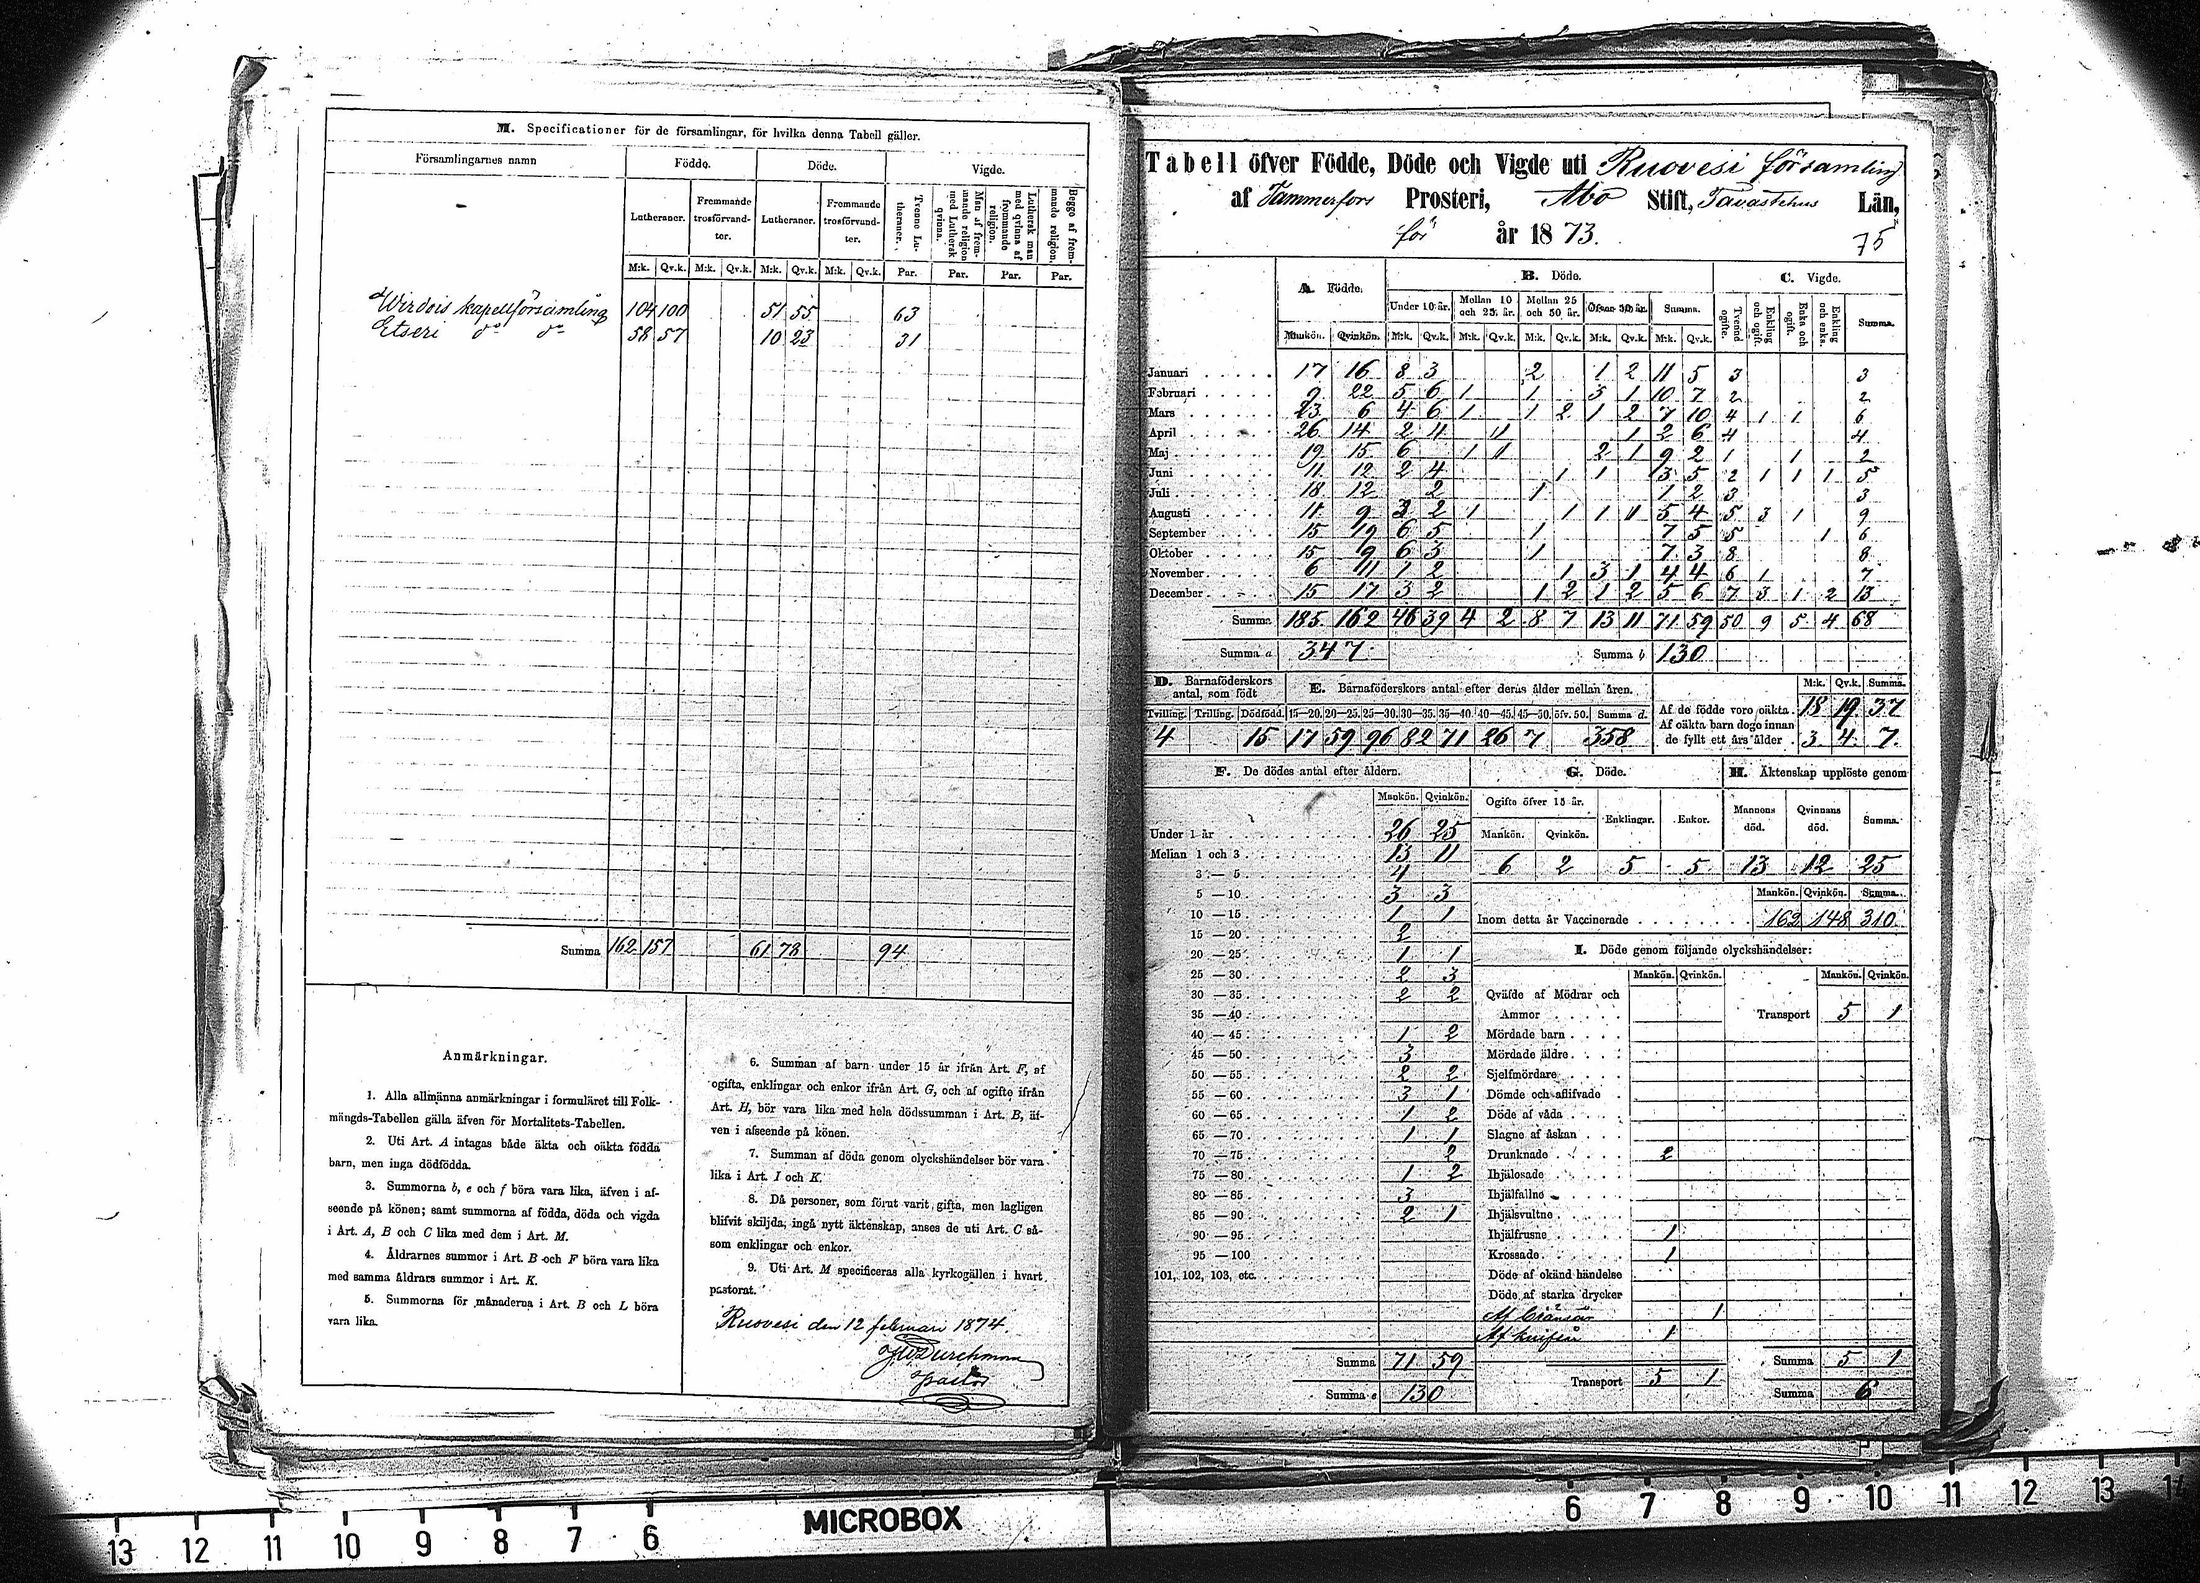 M. Specificationer för de församlingar, för hvilka denna Tabell gäller.
Församlingarnes namn Födde. Döde. Vigde.
Lutheraner. Fremmande trosförvandter. Lutheraner. Fremmande trosförvandter. Tvenne Lutheraner. Man af fremmande religion med Luthersk qvinna. Luthersk man med qvinna af fremmande religion. Begge af fremmande religion.
M:k. Qv.k. M:k. Qv.k. M:k. Qv.k. M:k. Qv.k. Par. Par. Par. Par.
Wirdois kapellförsamling 104 100 51 55 63
Etseri do do 58 57 10 23 31
Summa 162 157 61 78 94
Anmärkningar.
1. Alla allmänna anmärkningar i formuläret till Folk-
mängds-Tabellen gälla äfven för Mortalitets-Tabellen.
2. Uti Art. A intagas både äkta och oäkta födda
barn, men inga dödfödda.
3. Summorna b, e och f böra vara lika, äfven i af-
seende på könen; samt summorna af födda, döda och vigda
i Art. A, B och C lika med dem i Art. M.
4. Åldrarnes summor i Art. B och F böra vara lika
med samma åldrars summor i Art. K.
5. Summorna för månaderna i Art. B och L böra
vara lika.
6. Summan af barn under 15 år ifrån Art. F, af
ogifta, enklingar och enkor ifrån Art. G, och af ogifte ifrån
Art. H, bör vara lika med hela dödssumman i Art. B, äf-
ven i afseende på könen.
7. Summan af döda genom olyckshändelser bör vara
lika i Art. I och K.
8. Då personer, som förut varit gifta, men lagligen
blifvit skiljda, ingå nytt äktenskap, anses de uti Art. C så-
som enklingar och enkor.
9. Uti Art. M specificeras alla kyrkogällen i hvart
pastorat.
Ruovesi den 12 februari 1874.
Durchman
Pastor
Tabell öfver Födde, Döde och Vigde uti Ruovesi församling
af Tammerfors Prosteri, Åbo Stift, Tavastehus Län,
för år 1873.
75
A. Födde. B. Döde. C. Vigde.
Under 10 år. Mellan 10 och 25 år. Mellan 25 och 50 år. Öfver 50 år. Summa. Tvenne ogifte. Enkling och ogift. Enka och ogift. Enkling och enka. Summa.
Mankön. Qvinkön. M:k. Qv.k. M:k. Qv.k. M:k. Qv.k. M:k. Qv.k. M:k. Qv.k.
Januari 17 16 8 3 2 1 2 11 5 3 3
Februari 9 22 5 6 1 1 3 1 10 7 2 2
Mars 23 6 4 6 1 1 2 1 2 7 10 4 1 1 6
April 26 14 2 4 1 1 2 6 4 4
Maj 19 15 6 1 1 2 1 9 2 1 1 2
Juni 11 12 2 4 1 1 3 5 2 1 1 1 5
Juli 18 12 2 1 1 2 3 3
Augusti 11 9 3 2 1 1 1 1 5 4 5 3 1 9
September 15 19 6 5 1 7 5 5 1 6
Oktober 15 9 6 3 1 7 3 8 8
November 6 11 1 2 1 3 1 4 4 6 1 7
December 15 17 3 2 1 2 1 2 5 6 7 3 1 2 13
Summa 185 162 46 39 4 2 8 7 13 11 71 59 50 9 5 4 68
Summa a 347 Summa b 130
D. Barnaföderskors antal, som födt
Tvilling. Trilling. Dödfödd.
4 15
E. Barnaföderskors antal efter deras ålder mellan åren.
15—20. 20—25. 25—30. 30—35. 35—40. 40—45. 45—50. öfv. 50. Summa d.
17 59 96 82 71 26 7 358
M:k. Qv.k. Summa.
Af de födde voro oäkta. 18 19 37
Af oäkta barn dogo innan
de fyllt ett års ålder 3 4 7
F. De dödes antal efter åldern.
Mankön. Qvinkön.
Under 1 år 26 25
Mellan 1 och 3 13 11
3 — 5 4
5 — 10 3 3
10 — 15 1 1
15 — 20 2
20 — 25 1 1
25 — 30 2 3
30 — 35 2 2
35 — 40
40 — 45 1 2
45 — 50 3
50 — 55 2 2
55 — 60 3 1
60 — 65 1 2
65 — 70 1 1
70 — 75 2
75 — 80 1 2
80 — 85 3
85 — 90 2 1
90 — 95
95 — 100
101, 102, 103, etc.
Summa 71 59
Summa e 130
G. Döde.
Ogifte öfver 15 år. Enklingar. Enkor.
Mankön. Qvinkön.
6 2 5 5
H. Äktenskap upplöste genom
Mannens död. Qvinnans död. Summa.
13 12 25
Mankön. Qvinkön. Summa.
Inom detta år Vaccinerade 162 148 310
I. Döde genom följande olyckshändelser:
Mankön. Qvinkön. Mankön. Qvinkön.
Qväfde af Mödrar och
Ammor Transport 5 1
Mördade barn
Mördade äldre
Sjelfmördare
Dömde och aflifvade
Döde af våda
Slagne af åskan
Drunknade 2
Ihjälosade
Ihjälfallne
Ihjälsvultne
Ihjälfrusne 1
Krossade 1
Döde af okänd händelse
Döde af starka drycker
Af 1
Af 1
Transport 5 1
Summa 5 1
Summa 6
MICROBOX
13 12 11 10 9 8 7 6 6 7 8 9 10 11 12 13 14